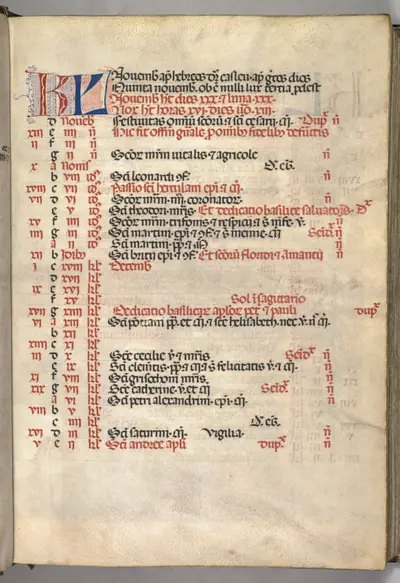 KL Novemb ap hebreos dr casleu ap grecos dios
Quinta novemb. ob e nulli lux tertia pdest
Novemb ht dies xxx & luna xxx.
Nox ht horas xvi dies vo viii
d Noveb Festivitas omniu scoru & sci cesarii m. Dup n
xiii e iiii n Hic fit offm gnale pomibus fidelib defuctis
ii f iii n
g ii n Scor mm vitalis & agricole
x a Nonis n
b viii id Sci leonardi cf.
xviii c vii id Passio sci herculani epi & m
vii d vi id Scor mm iiii coronator
e v id Sci theodori mris Et dedicatio basilice salvatoris
xv f iiii id Scor mm trifonis & respicii & nife v.
iiii g iii id Sci martini epi & cf & s menne m Seid n
a ii id Sci martini pp & m
xii b Idib Sci britii epi & cf Et scoru floridi & amantii n
i c xviii kl Decemb
d kl
ix e xvi kl
f xv kl Sol i sagitario
xvii g xiiii kl Dedicatio basilique aplor petri & pauli dup
vi a xiii kl Sci pontiani pp et m & sce helisabeth
b xii kl
xiiii c xi kl
iii d x kl Sce cecilie v & mris Seid n
e ix kl Sci clemtis pp & m & s felicitatis n
xi f viii kl Sci grisogoni mris n
xix g vii kl Sce catherine v et m Seid n
a vi kl Sci petri alexandrini epi m n
viii b v kl
c iiii kl
xvi d iii kl Sci saturnini m Vigilia n
v e ii kl Sci andree apli dup n